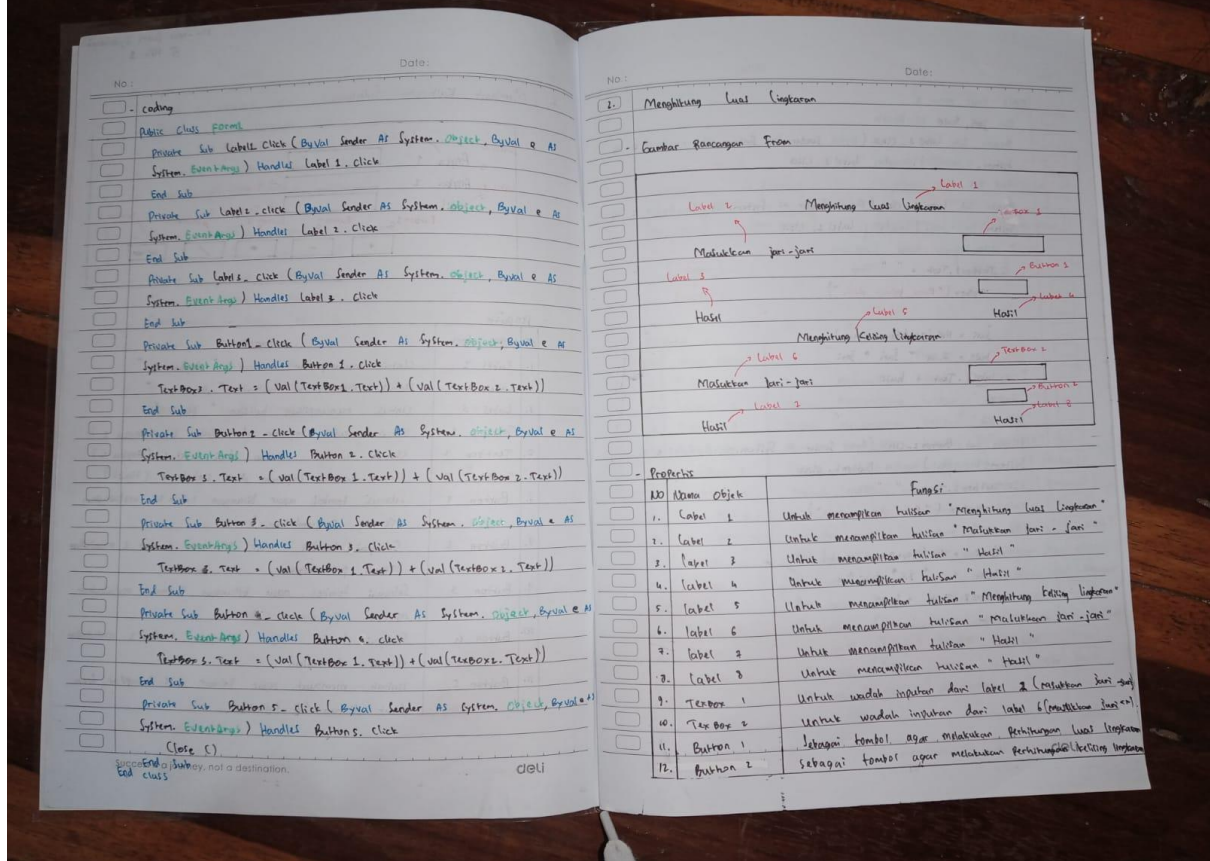 No :
Date:
- coding
Public Class Form1
Private Sub Label1_Click (ByVal Sender As System. Object, ByVal e As
System. EventArgs) Handles Label 1. Click
End Sub
Private Sub Label2_click (ByVal Sender As System. Object, ByVal e As
System. EventArgs) Handles Label 2. Click
End Sub
Private Sub Label3_Click (ByVal Sender As System. Object, ByVal e As
System. EventArgs) Handles Label 3. Click
End Sub
Private Sub Button1_Click (ByVal Sender As System. Object, ByVal e As
System. EventArgs) Handles Button 1. Click
TextBox3. Text = (Val (TextBox1. Text)) + (Val (TextBox 2. Text))
End Sub
Private Sub Button2_Click (ByVal Sender As System. Object, ByVal e As
System. EventArgs) Handles Button 2. Click
TextBox 3. Text = (Val (TextBox 1. Text)) + (Val (TextBox 2. Text))
End Sub
Private Sub Button 3_click (ByVal Sender As System. Object, ByVal e As
System. EventArgs) Handles Button 3. Click
TextBox 3. Text = (Val (TextBox 1. Text)) + (Val (TextBox 2. Text))
End Sub
Private Sub Button 4_click (ByVal Sender As System. Object, ByVal e As
System. EventArgs) Handles Button 4. click
TextBox 3. Text = (Val (TextBox 1. Text)) + (Val (TexBox2. Text))
End Sub
Private Sub Button 5_click (ByVal Sender As System. Object, ByVal e As
System. EventArgs) Handles Button 5. Click
Close ()
End Sub
End class
not a destination.
deli
No :
Date:
2. Menghitung Luas Lingkaran
- Gambar Rancangan From
Label 1
Label 2 Menghitung Luas Lingkaran
Masukkan jari-jari
Label 3 Button 1
Label 4
Hasil Hasil
Label 5
Menghitung Keliling Lingkaran
Label 6 TextBox 2
Masukkan Jari-Jari
Button 2
Label 7 Label 8
Hasil Hasil
- Propertis
NO Nama Objek Fungsi
1. Label 1 Untuk menampilkan tulisan "Menghitung Luas Lingkaran"
2. Label 2 Untuk menampilkan tulisan "Masukkan Jari-Jari"
3. Label 3 Untuk menampilkan tulisan "Hasil"
4. label 4 Untuk menampilkan tulisan "Hasil"
5. label 5 Untuk menampilkan tulisan "Menghitung Keliling lingkaran"
6. label 6 Untuk menampilkan tulisan "Masukkan jari-jari"
7. label 7 Untuk menampilkan tulisan "Hasil"
8. Label 8 Untuk menampilkan tulisan "Hasil"
9. Texbox 1 Untuk wadah inputan dari label 2 (Masukkan Jari-Jari)
10. Tex Box 2 Untuk wadah inputan dari label 6 (Masukkan
11. Button 1 Sebagai tombol agar melakukan Perhitungan Luas lingkaran
12. Button 2 Sebagai tombol agar melakukan Perhitungan keliling lingkaran